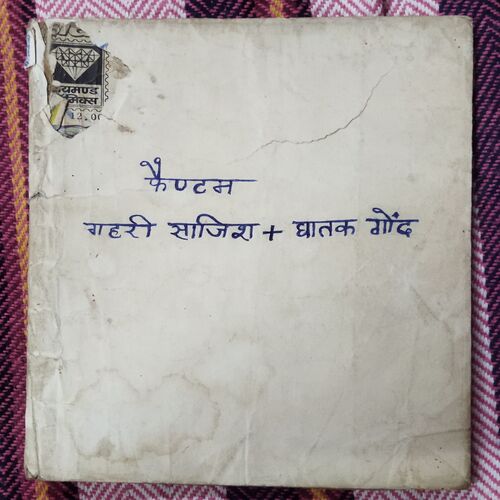 यमण्ड
मिक्स
12.00
फैण्टम
गहरी साजिश + घातक गोंद